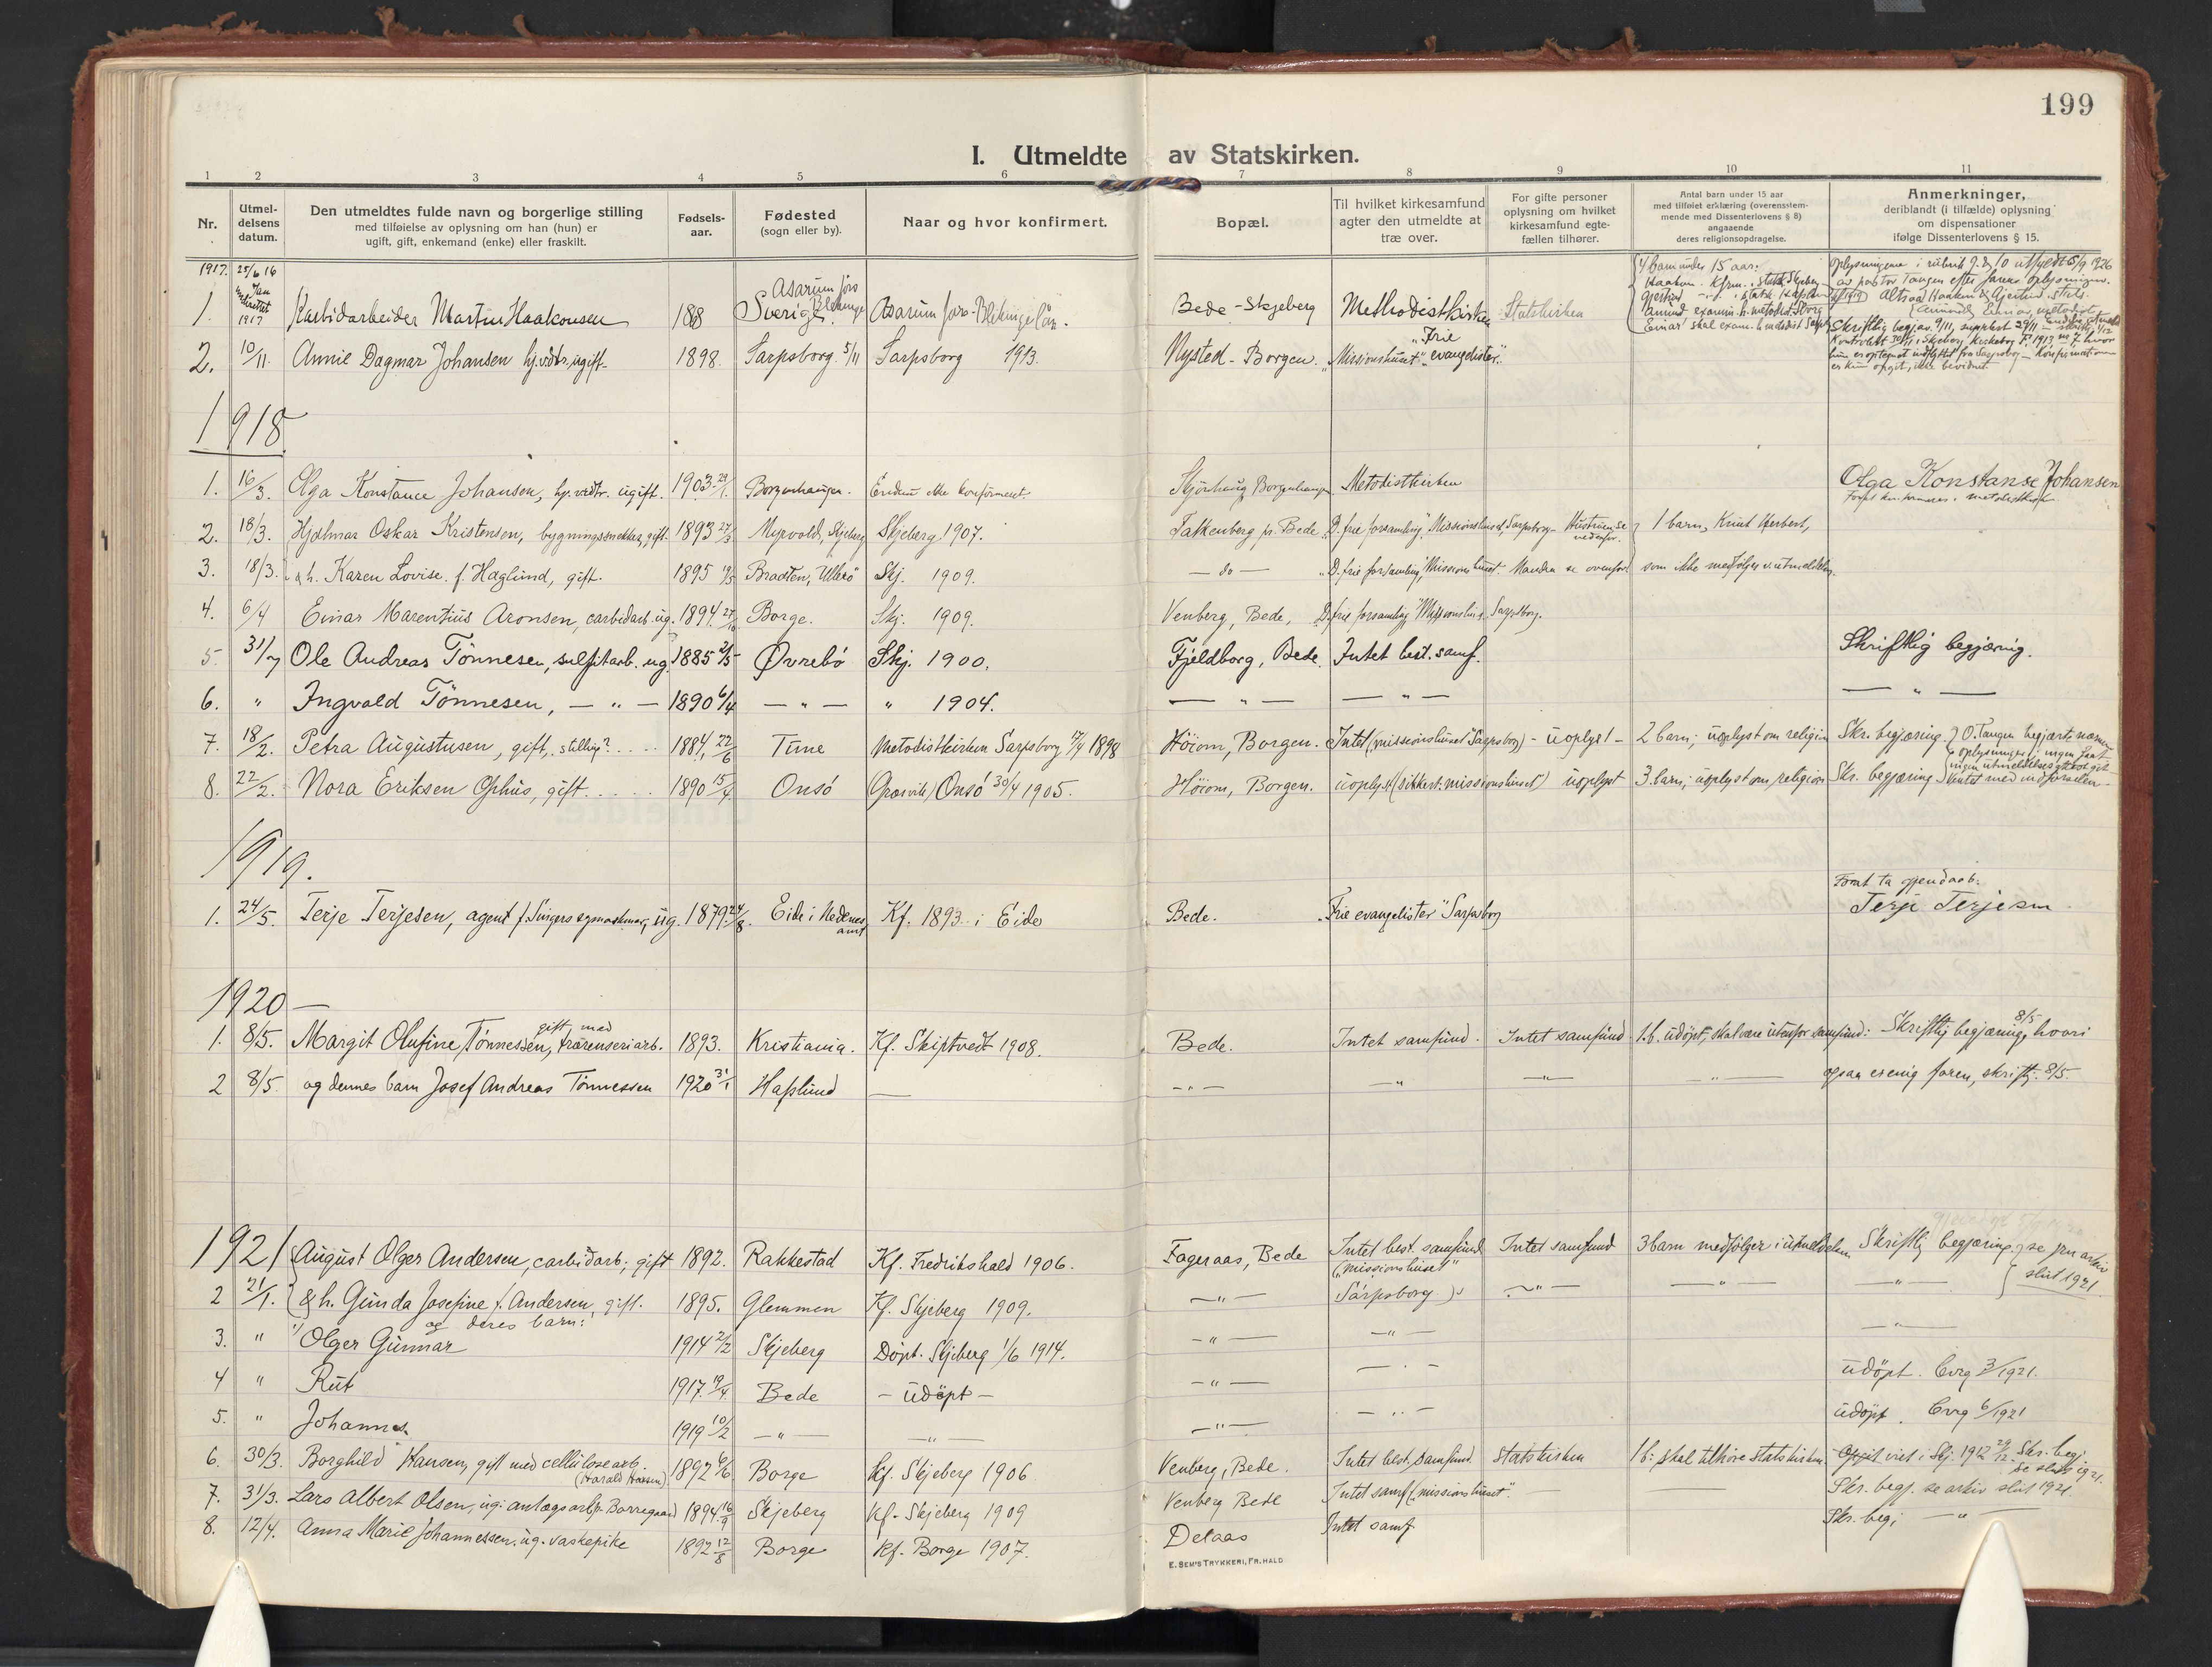 199
I. Utmeldte av Statskirken.
1 2 3 4 5 6 7 8 9 10 11
Nr.
Utmel-
delsens
datum.
Den utmeldtes fulde navn og borgerlige stilling
med tilføielse av oplysning om han (hun) er
ugift, gift, enkemand (enke) eller fraskilt.
Fødsels-
aar.
Fødested
(sogn eller by).
Naar og hvor konfirmert.
Bopæl.
Til hvilket kirkesamfund
agter den utmeldte at
træ over.
For gifte personer
oplysning om hvilket
kirkesamfund egte-
fællen tilhører.
Antal barn under 15 aar
med tilføiet erklæring (overensstem-
mende med Dissenterlovens § 8)
angaaende
deres religionsopdragelse.
Anmerkninger,
deriblandt (i tilfælde) oplysning
om dispensationer
ifølge Dissenterlovens § 15.
1917. 25/6 16
4 barn under 15 aar:
Oplysningene i rubrik 9. og 10 utfyldt 5/9 1926
av pastor Tangen efter farens oplysninger.
1. 1917 Karbidarbeider Martin Haakonsen 1868 Sverige Asarum fors Blekinge Asarum fors. Blekinge län. Bede - Skjeberg Methodistkirken Statskirken
2. 10/11. Annie Dagmar Johansen hj.v.dtr. ugift. 1898. Sarpsborg. 5/11 Sarpsborg 1913. Nysted - Borgen. "Missionshuset" "Frie evangelister".
1918.
1. 16/3. Olga Konstance Johansen, hj.v.dtr. ugift. 1903. 29/1. Borgenhaugen. Endnu ikke konfirmeret. Skjönhaug Borgenhaugen Metodistkirken Olga Konstanse Johansen
2. 18/3. Hjalmar Oskar Kristensen, bygningssnekker, gift. 1893 27/3 Myrvold, Skjeberg Skjeberg 1907. Falkenberg pr. Bede "D. frie forsamling", Missionshuset, Sarpsborg - Hustruen se nedenfor. 1 barn, Knut Herbert,
3. 18/3. & h. Karen Lovise. f. Haglund, gift. 1895 Bradten, Ullerö Skj. 1909. - do - "D. frie forsamling", Missionshuset. Manden se ovenfor som ikke medfølger v. utmeldelsen.
4. 6/4 Einar Marentius Aronsen, carbidarb. ug. 1894. 27/10 Borge. Skj. 1909. Venberg, Bede, D. frie forsamling "Missionshus". Sarpsborg.
5. 31/7 Ole Andreas Tönnesen, sulfitarb. ug. 1885 2/5 Øvrebö Skj. 1900. Fjeldborg, Bede. Intet best. samf. Skriftlig begjæring.
6. " Ingvald Tönnesen, — " — 1890 6/4 — " — " 1904. — " — — " — — " —
7. 18/2. Petra Augustusen, gift, stilling? . . . . 1884, 22/6 Tune Metodistkirken Sarpsborg 17/4 1898 Höiom, Borgen. Intet (missionshuset Sarpsborg) - uoplyst - 2 barn; uoplyst om religion Skr. begjæring. O. Tangen begjærte nærmere
oplysninger; ingen faat
8. 22/2. Nora Eriksen Ophus, gift . . . . . 1890 15/4. Onsö (Græsvik) Onsö 30/4 1905. Höiom, Borgen. uoplyst (sikkert missionshuset) uoplyst 3 barn; uoplyst om religion Skr. begjæring
1919.
1. 24/5. Terje Terjesen, agent f. Singers symaskiner, ug. 1879. 24/8. Eide i Nedenes amt Kf. 1893 i Eide Bede. "Frie evangelister" Sarpsborg Terje Terjesen.
1920 —
1. 8/5. Margit Olufine Tönnessen, gift med trærenseriarb. 1893. Kristiania. Kf. Skiptvedt 1908. Bede. Intet samfund. Intet samfund 1 b. udöpt, skal være utenfor samfund: Skriftlig begjæring 8/5, hvori
2 8/5 og dennes barn Josef Andreas Tönnessen 1920 31/1 Hafslund — - " - — " — " — " — ogsaa er enig faren, skriftl. 8/5.
1921 August Olger Andersen, carbidarb., gift 1892. Rakkestad Kf. Fredrikshald 1906. Fageraas, Bede Intet best. samfund ("missionshuset" Intet samfund 3 barn medfølger i utmeldelsen Skriftlig begjæring, se pen arkiv
2 21/1. & h. Gunda Josefine f. Andersen, gift. 1895. Glemmen Kf. Skjeberg 1909. — " — Sarpsborg) — " — — " — — " — slut 1921
og deres barn:
3. " 1) Olger Gunnar 1914 2/2 Skjeberg Döpt. Skjeberg 1/6 1914. — " — — " — — " —
4 " Rut 1917. 19/4. Bede - udöpt - — " — — " — udöpt. Borg 3/1921.
5. " Johannes 1919 10/2 — " — — " — — " — — " — udöpt. Borg 6/1921
6. 30/3. Borghild Hansen, gift med cellulosearb. (Harald Hansen) 1892 6/6 Borge Kf. Skjeberg 1906 Venberg, Bede. Intet best. samfund. Statskirken 1 b. skal tilhöre statskirken Opgit viet i Skj. 1912 29/12. Skr. begj. se slut 1921.
7. 31/3. Lars Albert Olsen, ug. anlægsarb. Borregaard 1894. 16/9 Skjeberg Kf. Skjeberg 1909 Venberg Bede Intet samf. ("missionshuset". — — Skr. begj. se arkiv slut 1921
8. 12/4. Anna Marie Johannessen, ug. vaskepike 1892 12/8 Borge Kf. Borge 1907. Delaas Intet samf Skr. begj. — " —
E. SEM'S TRYKKERI, FR.HALD